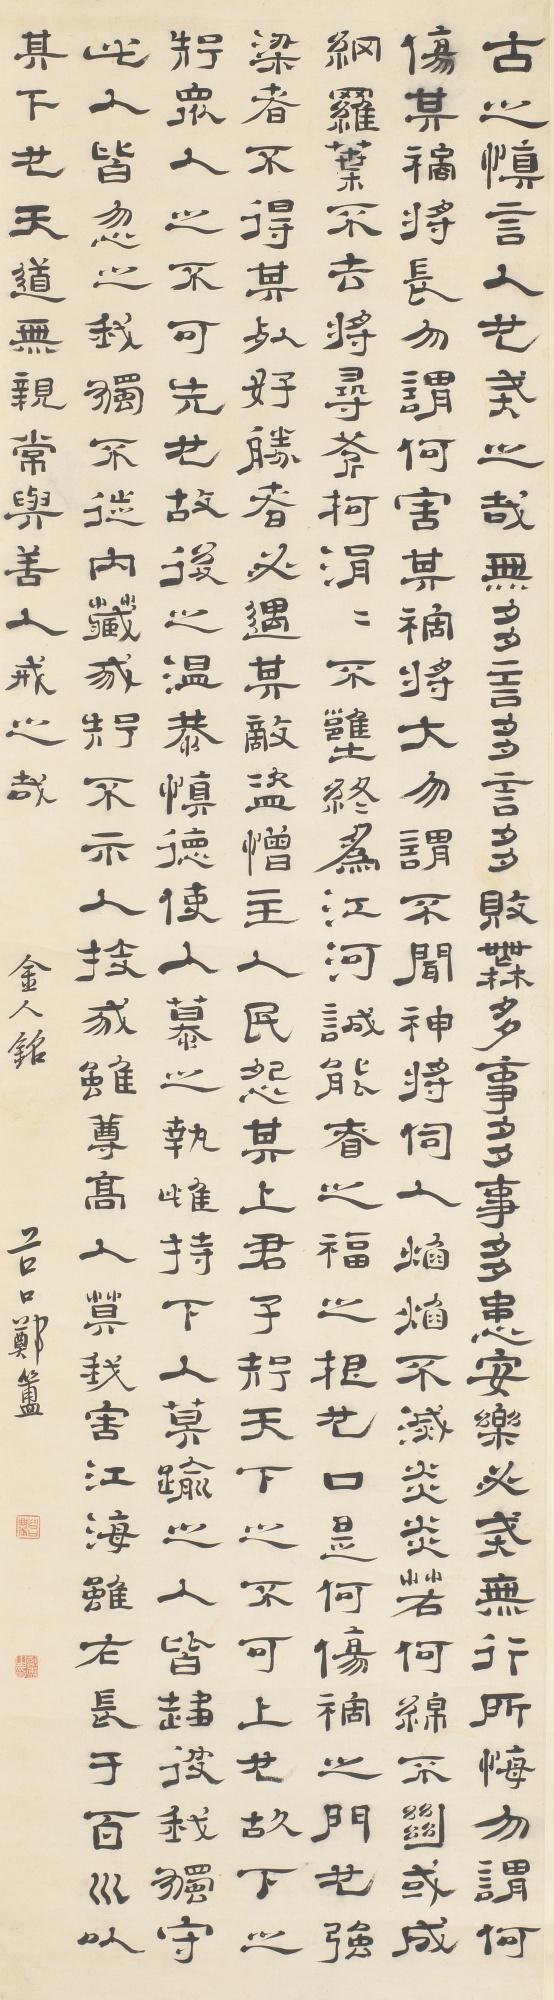 古之慎言人也戒之哉無多言多言多敗無多事多事多患安樂必戒無行所悔勿謂何
傷其禍將長勿謂何害其禍將大勿謂不聞神將伺人焰焰不滅炎炎若何綿不絕或成
網羅葉不去將尋斧柯涓〻不壅終為江河誠能眘之福之根也口是何傷禍之門也強
梁者不得其死好勝者必遇其敵盜憎主人民怨其上君子知天下之不可上也故下之
知眾人之不可先也故後之溫恭慎德使人慕之執雌持下人莫踰之人皆趨彼我獨守
此人皆忽之我獨不從內藏我知不示人技我雖尊高人莫我害江海雖左長于百川以
其下也天道無親常與善人戒之哉
金人銘
谷口鄭簠